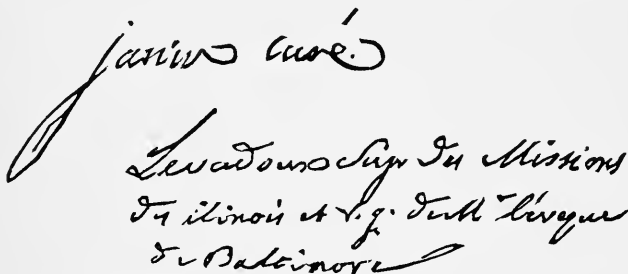 janin curé.
Levadoux Supr des Missions
des ilinois et v. g. de Mr l'évêque
de Baltimore